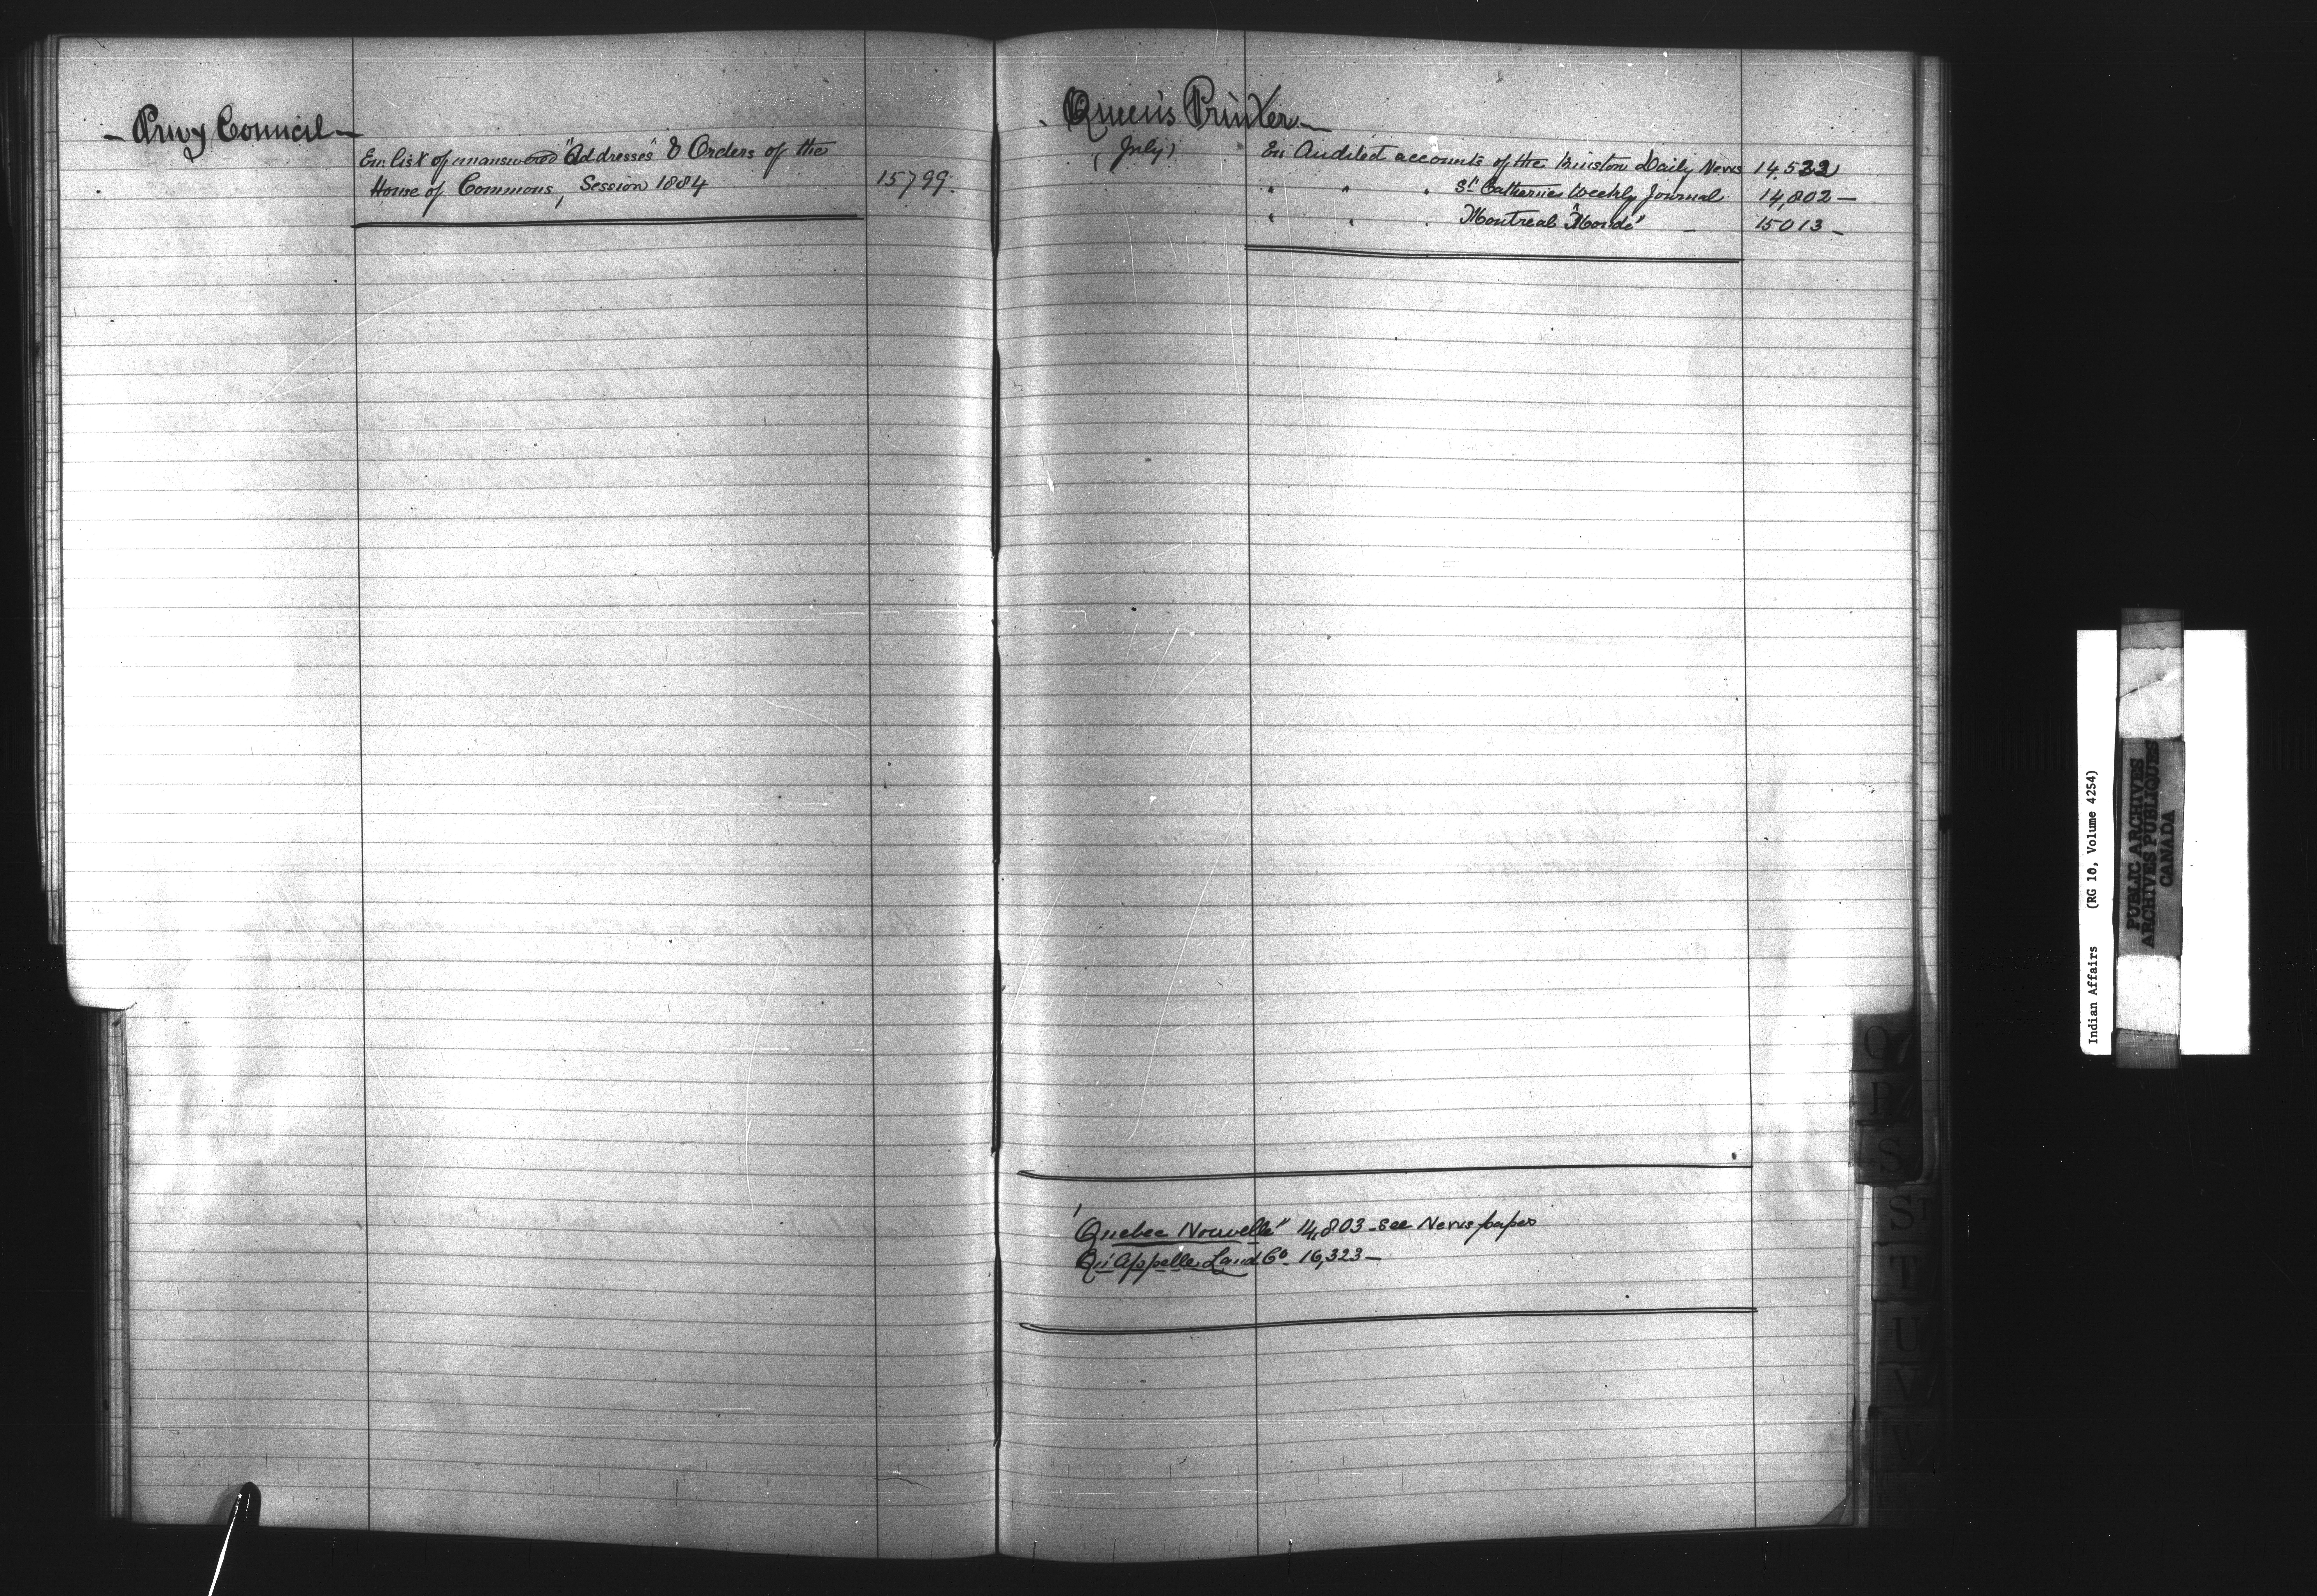 — Privy Council —
En. list of unanswered "Addresses" & Orders of the
House of Commons, Session 1884 15799.
Queen's Printer —
(July) En Audited accounts of the Kinston Daily News 14,522
" " " St Catharines Weekly Journal 14,802 —
" " " Montreal "Monde" — 15013 —
"Quebec Nouvelle" 14,803 - see Newspaper
Qu'Appelle Land Co. 16,323 —
O
P
S
St
T
U
V
W
Indian Affairs (RG 10, Volume 4254)
PUBLIC ARCHIVES
ARCHIVES PUBLIQUES
CANADA